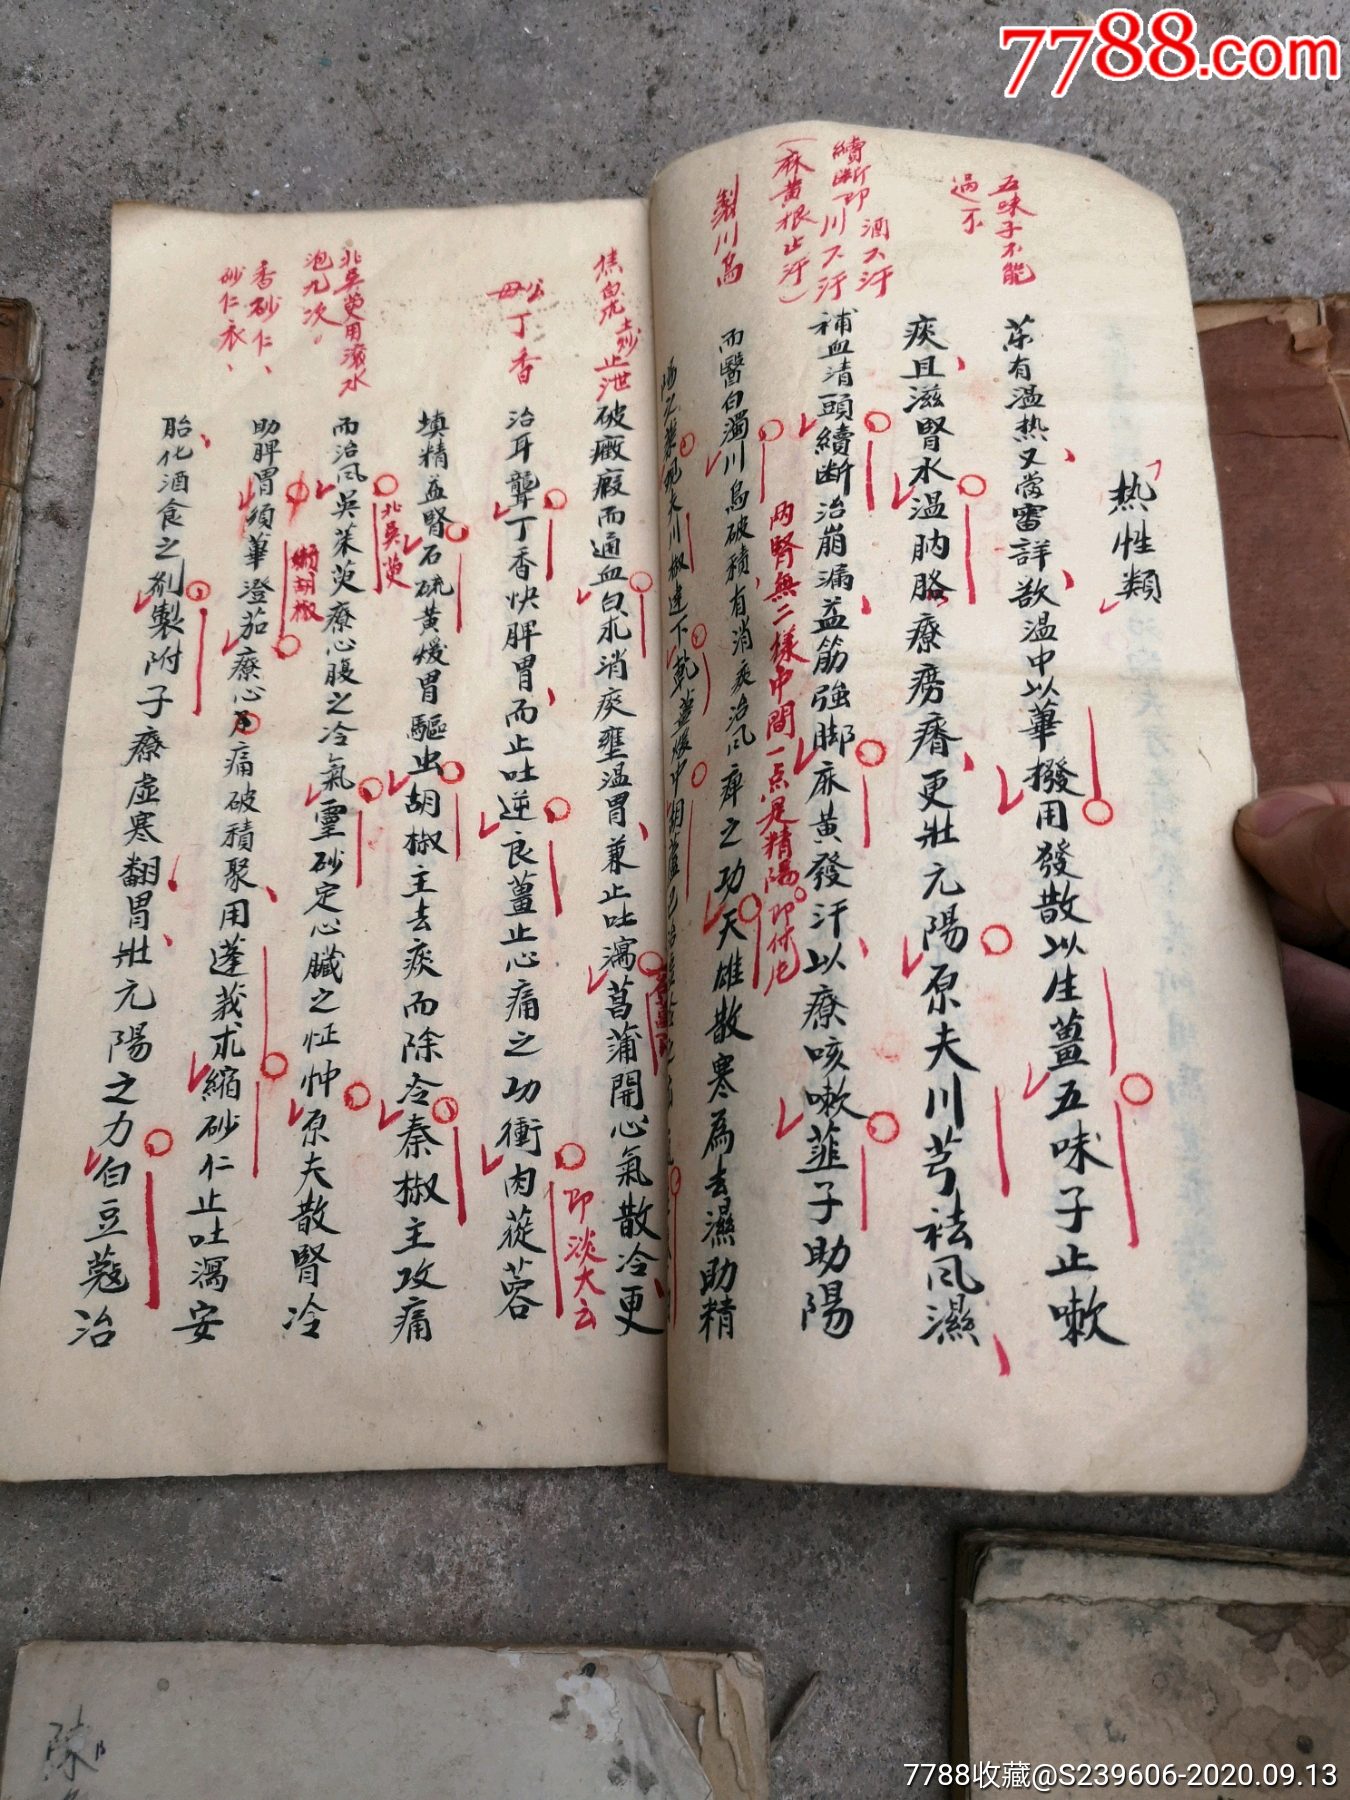 7788.com
「热性類
五味子不能
過不
藥有温热又當審詳欲温中以蓽撥用發散以生薑五味子止嗽
痰且滋腎水温肭臍療癆瘵更壯元陽原夫川芎祛風濕
續斷即川不汙
酒不汙
(麻黄根止汗)
補血清頭續斷治崩漏益筋強脚麻黄發汗以療咳嗽韮子助陽
两腎無二様中間一点是精陽
製川烏
而醫白濁川烏破積有消痰治风痺之功天雄散寒為去濕助精
陽之
夫川椒達下乾薑煖中胡
焦白朮
土炒止泄
破癥瘕而通血白朮消痰壅温胃兼止吐瀉菖蒲開心氣散冷更
公丁香
母
治耳聾丁香快脾胃而止吐逆良薑止心痛之功衝肉蓯蓉
即淡大云
填精益腎石硫黄煖胃驅虫胡椒主去痰而除冷秦椒主攻痛
北吳萸用滾水
泡九次。
而治风吳茱萸療心腹之冷氣靈砂定心臟之怔忡原夫散腎冷
北吳萸
香砂仁、
砂仁衣、
助脾胃須蓽澄茄療心疼痛破積聚用蓬莪朮縮砂仁止吐瀉安
胡椒
胎化酒食之剤製附子療虚寒翻胃壯元陽之力白豆蔻治
陳
7788收藏@S239606-2020.09.13